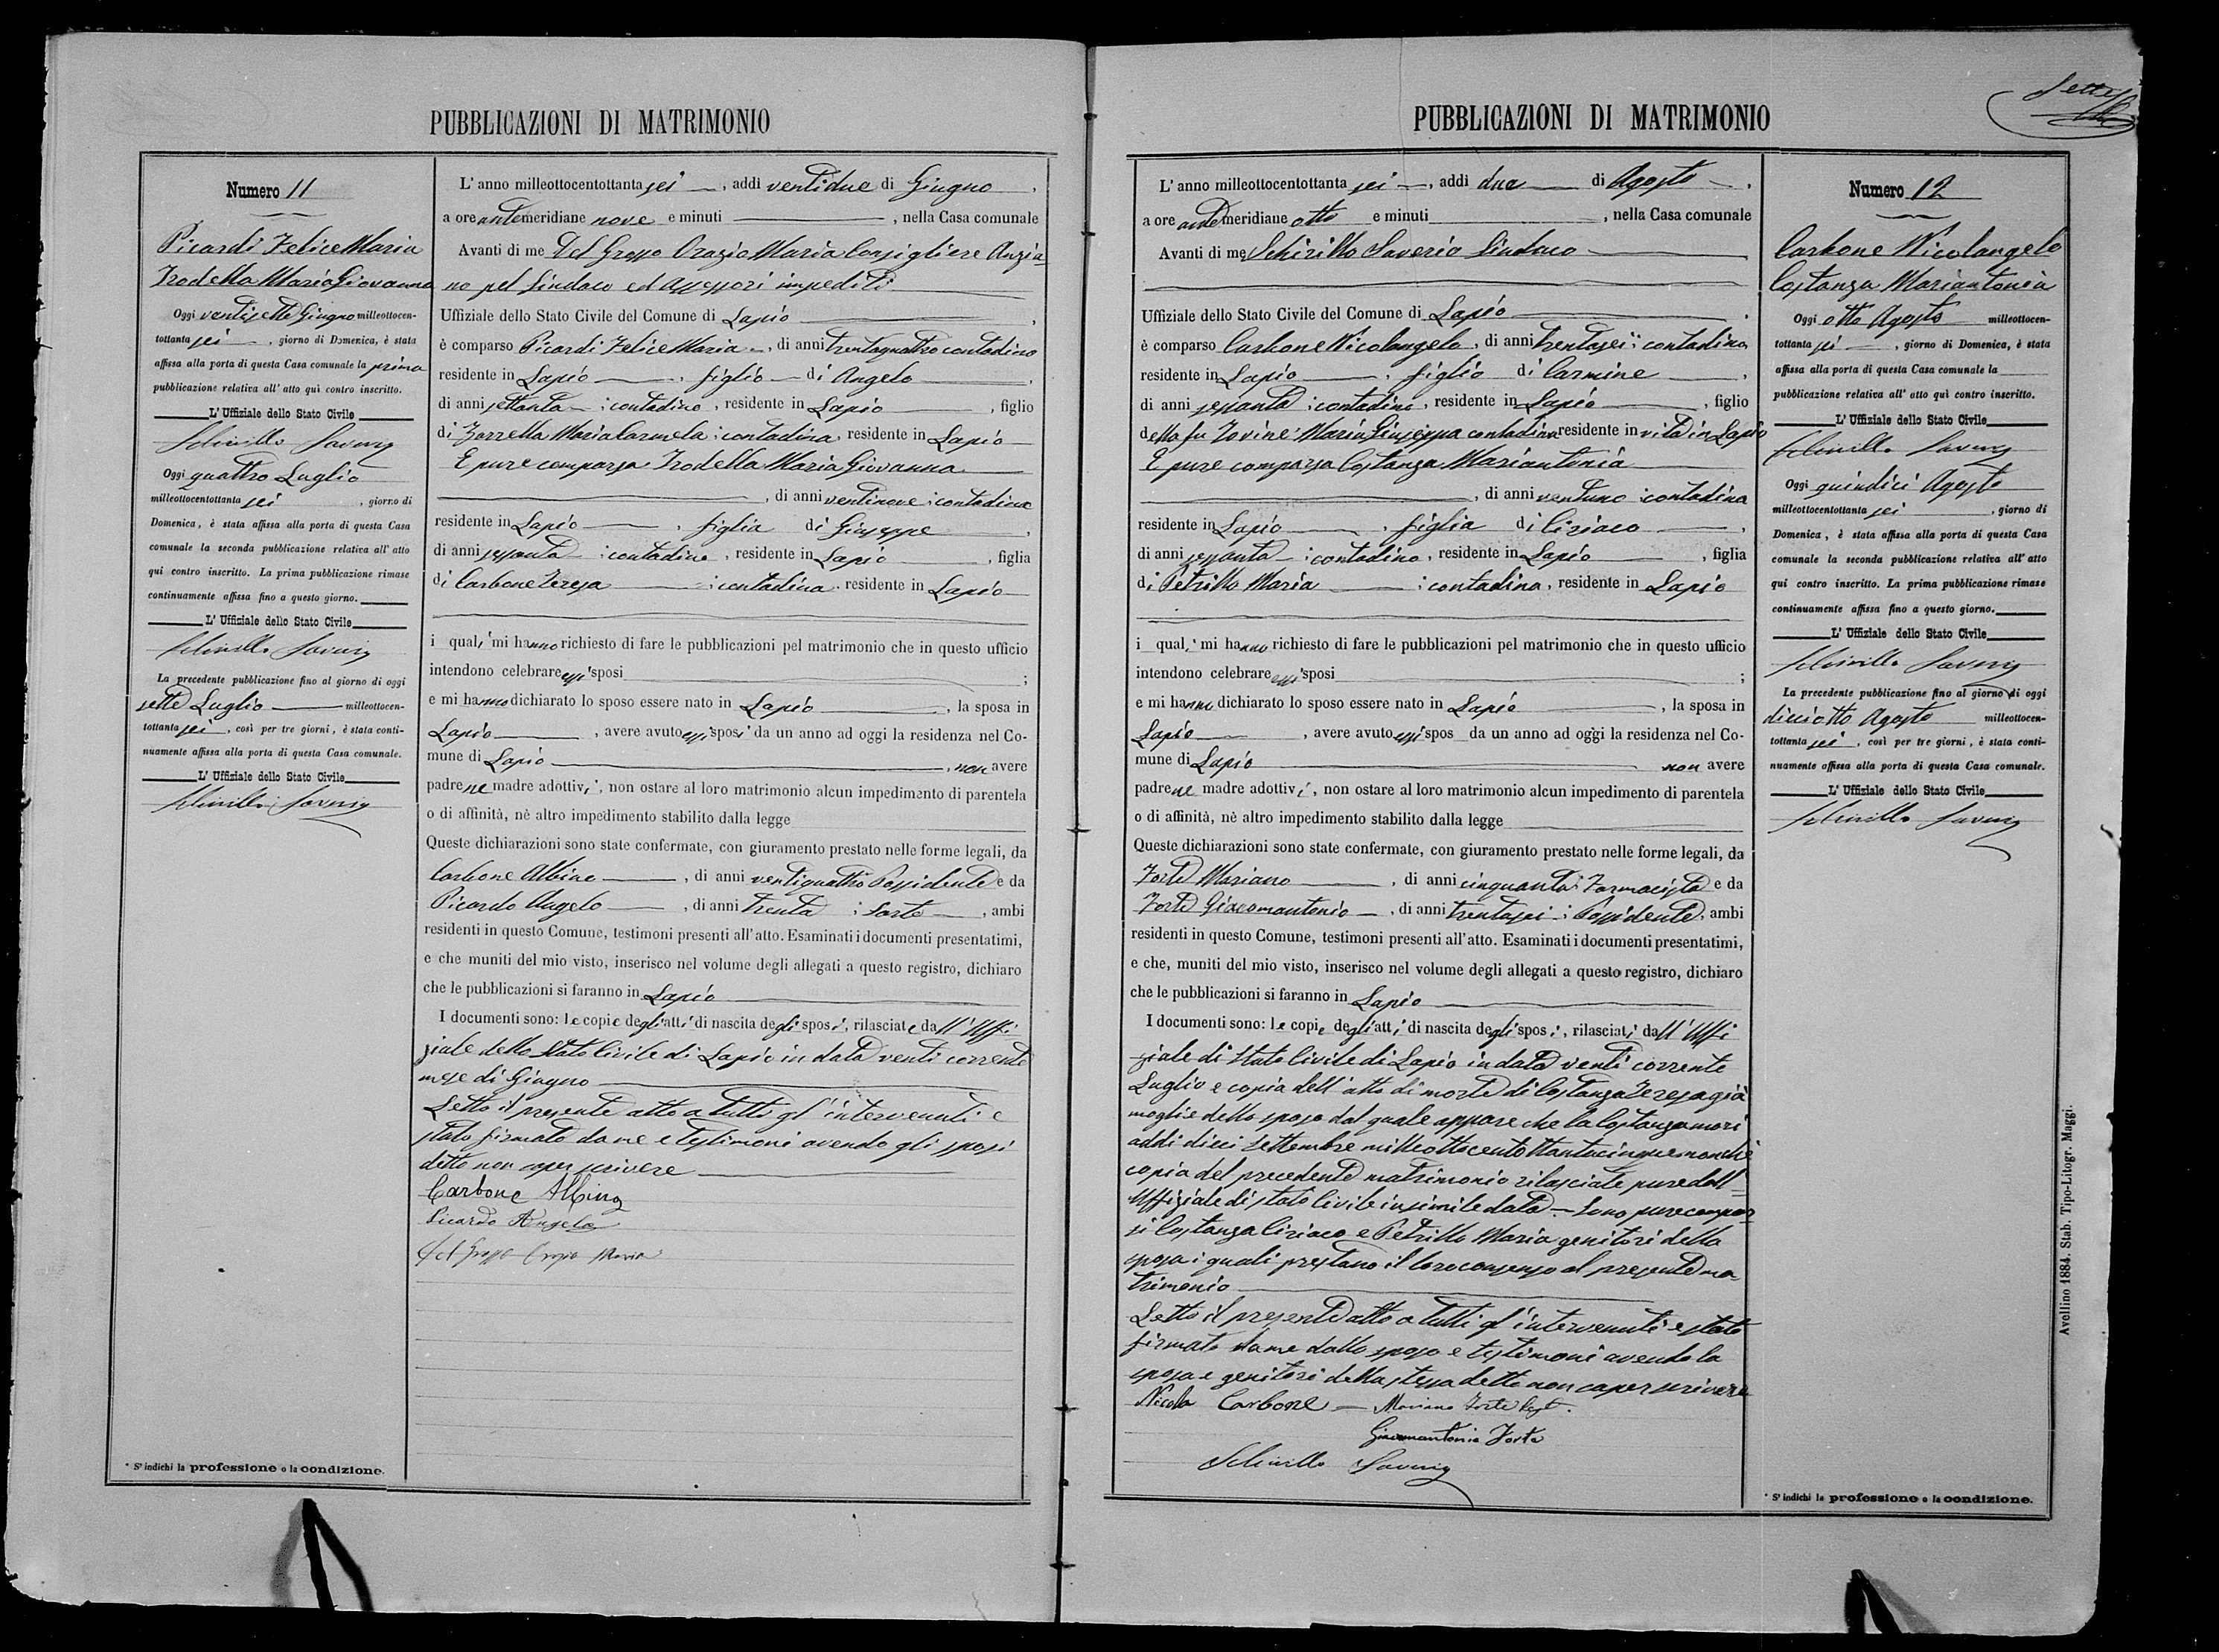 PUBBLICAZIONI DI MATRIMONIO
Numero 11
Picardi Felice Maria
Trodella Maria Giovanna
Oggi ventisette Giugno milleottocen-
tottanta sei, giorno di Domenica, è stata
affissa alla porta di questa Casa comunale la prima
pubblicazione relativa all' atto quì contro inscritto.
L' Uffiziale dello Stato Civile
Schirillo Saverio
Oggi quattro Luglio
milleottocentottanta sei, giorno di
Domenica, è stata affissa alla porta di questa Casa
comunale la seconda pubblicazione relativa all' atto
qui contro inscritto. La prima pubblicazione rimase
continuamente affissa fino a questo giorno.
L' Uffiziale dello Stato Civile
Schirillo Saverio
La precedente pubblicazione fino al giorno di oggi
sette Luglio milleottocen-
tottanta sei, così per tre giorni, è stata conti-
nuamente affissa alla porta di questa Casa comunale.
L' Uffiziale dello Stato Civile
Schirillo Saverio
* S' indichi la professione o la condizione.
L' anno milleottocentottanta sei, addì ventidue di Giugno,
a ore antemeridiane nove e minuti, nella Casa comunale
Avanti di me Del Grosso Orazio Maria Consigliere Anzia-
no pel Sindaco ed Assessori impediti
Uffiziale dello Stato Civile del Comune di Lapio,
è comparso Picardi Felice Maria, di anni trentaquattro contadino
residente in Lapio, figlio di Angelo,
di anni settanta; contadino, residente in Lapio, figlio
di Zarrella Maria Carmela; contadina, residente in Lapio
E pure comparsa Trodella Maria Giovanna
, di anni ventinove; contadina
residente in Lapio, figlia di Giuseppe,
di anni sessanta; contadino, residente in Lapio, figlia
di Carbone Teresa; contadina, residente in Lapio
i quali mi hanno richiesto di fare le pubblicazioni pel matrimonio che in questo ufficio
intendono celebrare essi sposi;
e mi hanno dichiarato lo sposo essere nato in Lapio, la sposa in
Lapio, avere avuto essi sposi da un anno ad oggi la residenza nel Co-
mune di Lapio, non avere
padre ne madre adottivi, non ostare al loro matrimonio alcun impedimento di parentela
o di affinità, nè altro impedimento stabilito dalla legge
Queste dichiarazioni sono state confermate, con giuramento prestato nelle forme legali, da
Carbone Albino, di anni ventiquattro Possidente e da
Picardo Angelo, di anni trenta; Sarto, ambi
residenti in questo Comune, testimoni presenti all'atto. Esaminati i documenti presentatimi,
e che muniti del mio visto, inserisco nel volume degli allegati a questo registro, dichiaro
che le pubblicazioni si faranno in Lapio
I documenti sono: le copie degli atti di nascita degli sposi, rilasciate dall' Uffi-
ziale dello Stato Civile di Lapio in data venti corrente
mese di Giugno
Letto il presente atto a tutti gl' intervenuti e
stato firmato da me e testimoni avendo gli sposi
detto non saper scrivere
Carbone Albino
Picardo Angelo
Del Grosso Orazio Maria
Sette
PUBBLICAZIONI DI MATRIMONIO
L' anno milleottocentottanta sei, addì due di Agosto,
a ore antemeridiane otto e minuti, nella Casa comunale
Avanti di me Schirillo Saverio Sindaco
Uffiziale dello Stato Civile del Comune di Lapio,
è comparso Carbone Nicolangelo, di anni trentasei; contadino
residente in Lapio, figlio di Carmine,
di anni sessanta; contadino, residente in Lapio, figlio
della fu Iovine Maria Giuseppa contadina residente in vita in Lapio
E pure comparsa Costanza Mariantonia
, di anni ventuno; contadina
residente in Lapio, figlia di Ciriaco,
di anni sessanta; contadino, residente in Lapio, figlia
di Petrillo Maria; contadina, residente in Lapio
i quali mi hanno richiesto di fare le pubblicazioni pel matrimonio che in questo ufficio
intendono celebrare essi sposi;
e mi hanno dichiarato lo sposo essere nato in Lapio, la sposa in
Lapio, avere avuto essi spos da un anno ad oggi la residenza nel Co-
mune di Lapio non avere
padre ne madre adottivi, non ostare al loro matrimonio alcun impedimento di parentela
o di affinità, nè altro impedimento stabilito dalla legge
Queste dichiarazioni sono state confermate, con giuramento prestato nelle forme legali, da
Forte Mariano, di anni cinquanta; Farmacista e da
Forte Giacomantonio, di anni trentasei; Possidente, ambi
residenti in questo Comune, testimoni presenti all'atto. Esaminati i documenti presentatimi,
e che, muniti del mio visto, inserisco nel volume degli allegati a questo registro, dichiaro
che le pubblicazioni si faranno in Lapio
I documenti sono: le copie degli atti di nascita degli sposi, rilasciati dall' Uffi
ziale di Stato Civile di Lapio in data venti corrente
Luglio e copia dell' atto di morte di Costanza Teresa già
moglie dello sposo dal quale appare che la Costanza morì
addì dieci Settembre milleottocentottantacinque nonchè
copia del precedente matrimonio rilasciate pure dall'
Uffiziale di stato Civile in simile data – Sono pure compar
si Costanza Ciriaco e Petrillo Maria genitori della
sposa i quali prestano il loro consenso al presente ma
trimonio
Letto il presente atto a tutti gl' intervenuti e stato
firmato da me dallo sposo e testimoni avendo la
sposa e genitori della stessa detto non saper scrivere
Nicola Carbone – Mariano Forte
Giacomantonio Forte
Schirillo Saverio
Numero 12
Carbone Nicolangelo
Costanza Mariantonia
Oggi otto Agosto milleottocen-
tottanta sei, giorno di Domenica, è stata
affissa alla porta di questa Casa comunale la
pubblicazione relativa all' atto quì contro inscritto.
L' Uffiziale dello Stato Civile
Schirillo Saverio
Oggi quindici Agosto
milleottocentottanta sei, giorno di
Domenica, è stata affissa alla porta di questa Casa
comunale la seconda pubblicazione relativa all' atto
qui contro inscritto. La prima pubblicazione rimase
continuamente affissa fino a questo giorno.
L' Uffiziale dello Stato Civile
Schirillo Saverio
La precedente pubblicazione fino al giorno di oggi
diciotto Agosto milleottocen-
tottanta sei, così per tre giorni, è stata conti-
nuamente affissa alla porta di questa Casa comunale.
L' Uffiziale dello Stato Civile
Schirillo Saverio
* S' indichi la professione o la condizione.
Avellino 1884. Stab. Tipo-Litogr. Maggi.